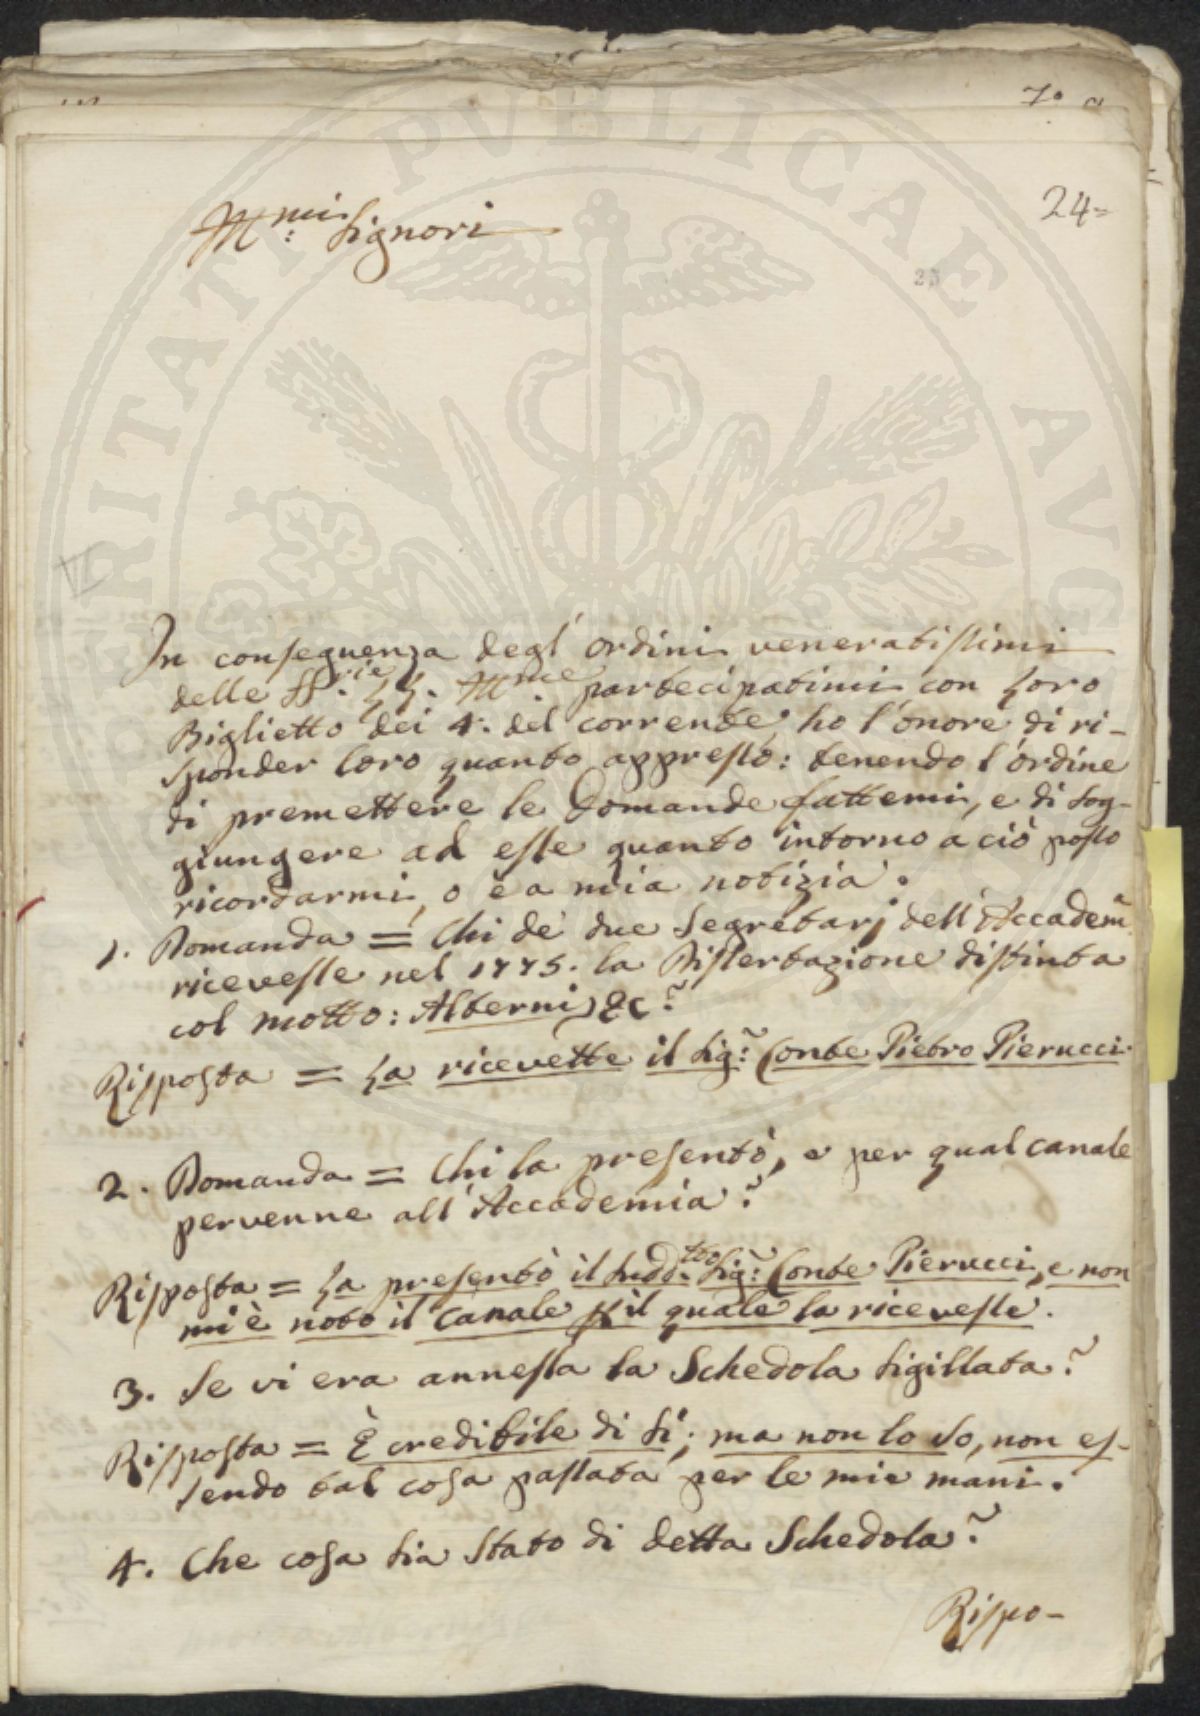 7.º
24=
25
M.mi Signori
In conseguenza degl' ordini veneratissimi
delle SS.rie LL. M.me partecipatimi con Loro
Biglietto dei 4. del corrente, ho l'onore di ri-
sponder loro quanto appresso: tenendo l'ordine
di premettere le Domande fattemi, e di sog-
giungere ad esse quanto intorno a ciò posso
ricordarmi, o è a mia notizia.
1. Domanda = Chi de' due Segretarj dell' Accadem.~
ricevesse nel 1775. la Dissertazione distinta
col motto: Alterni &c~?
Risposta = La ricevette il Sig.~ Conte Pietro Pierucci
2. Domanda = Chi la presentò, e per qual canale
pervenne all' Accademia?
Risposta = La presentò il sudd.tto Sig.~ Conte Pierucci, e non
mi è noto il canale p il quale la ricevesse.
3. Se vi era annessa la Schedola sigillata?
Risposta = È credibile di sì; ma non lo so, non es-
sendo tal cosa passata per le mie mani.
4. Che cosa sia stato di detta Schedola?
Rispo-
PVBLICAE